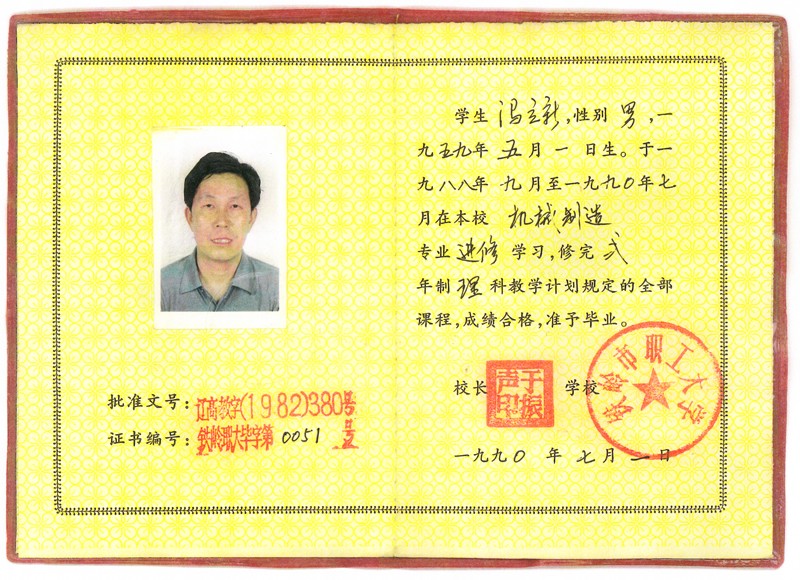 学生 冯立新,性别 男,一
九五九年 五月 一 日生。于一
九八八年 九月至一九九〇年七
月在本校 机械制造
专业 进修 学习,修完 弍
年制 理 科教学计划规定的全部
课程,成绩合格,准予毕业。
批准文号:辽高教字(1982)380号
证书编号:铁岭职大毕字第 0051 号
校长 学校
铁岭市职工大学
一九九〇 年 七月 二日